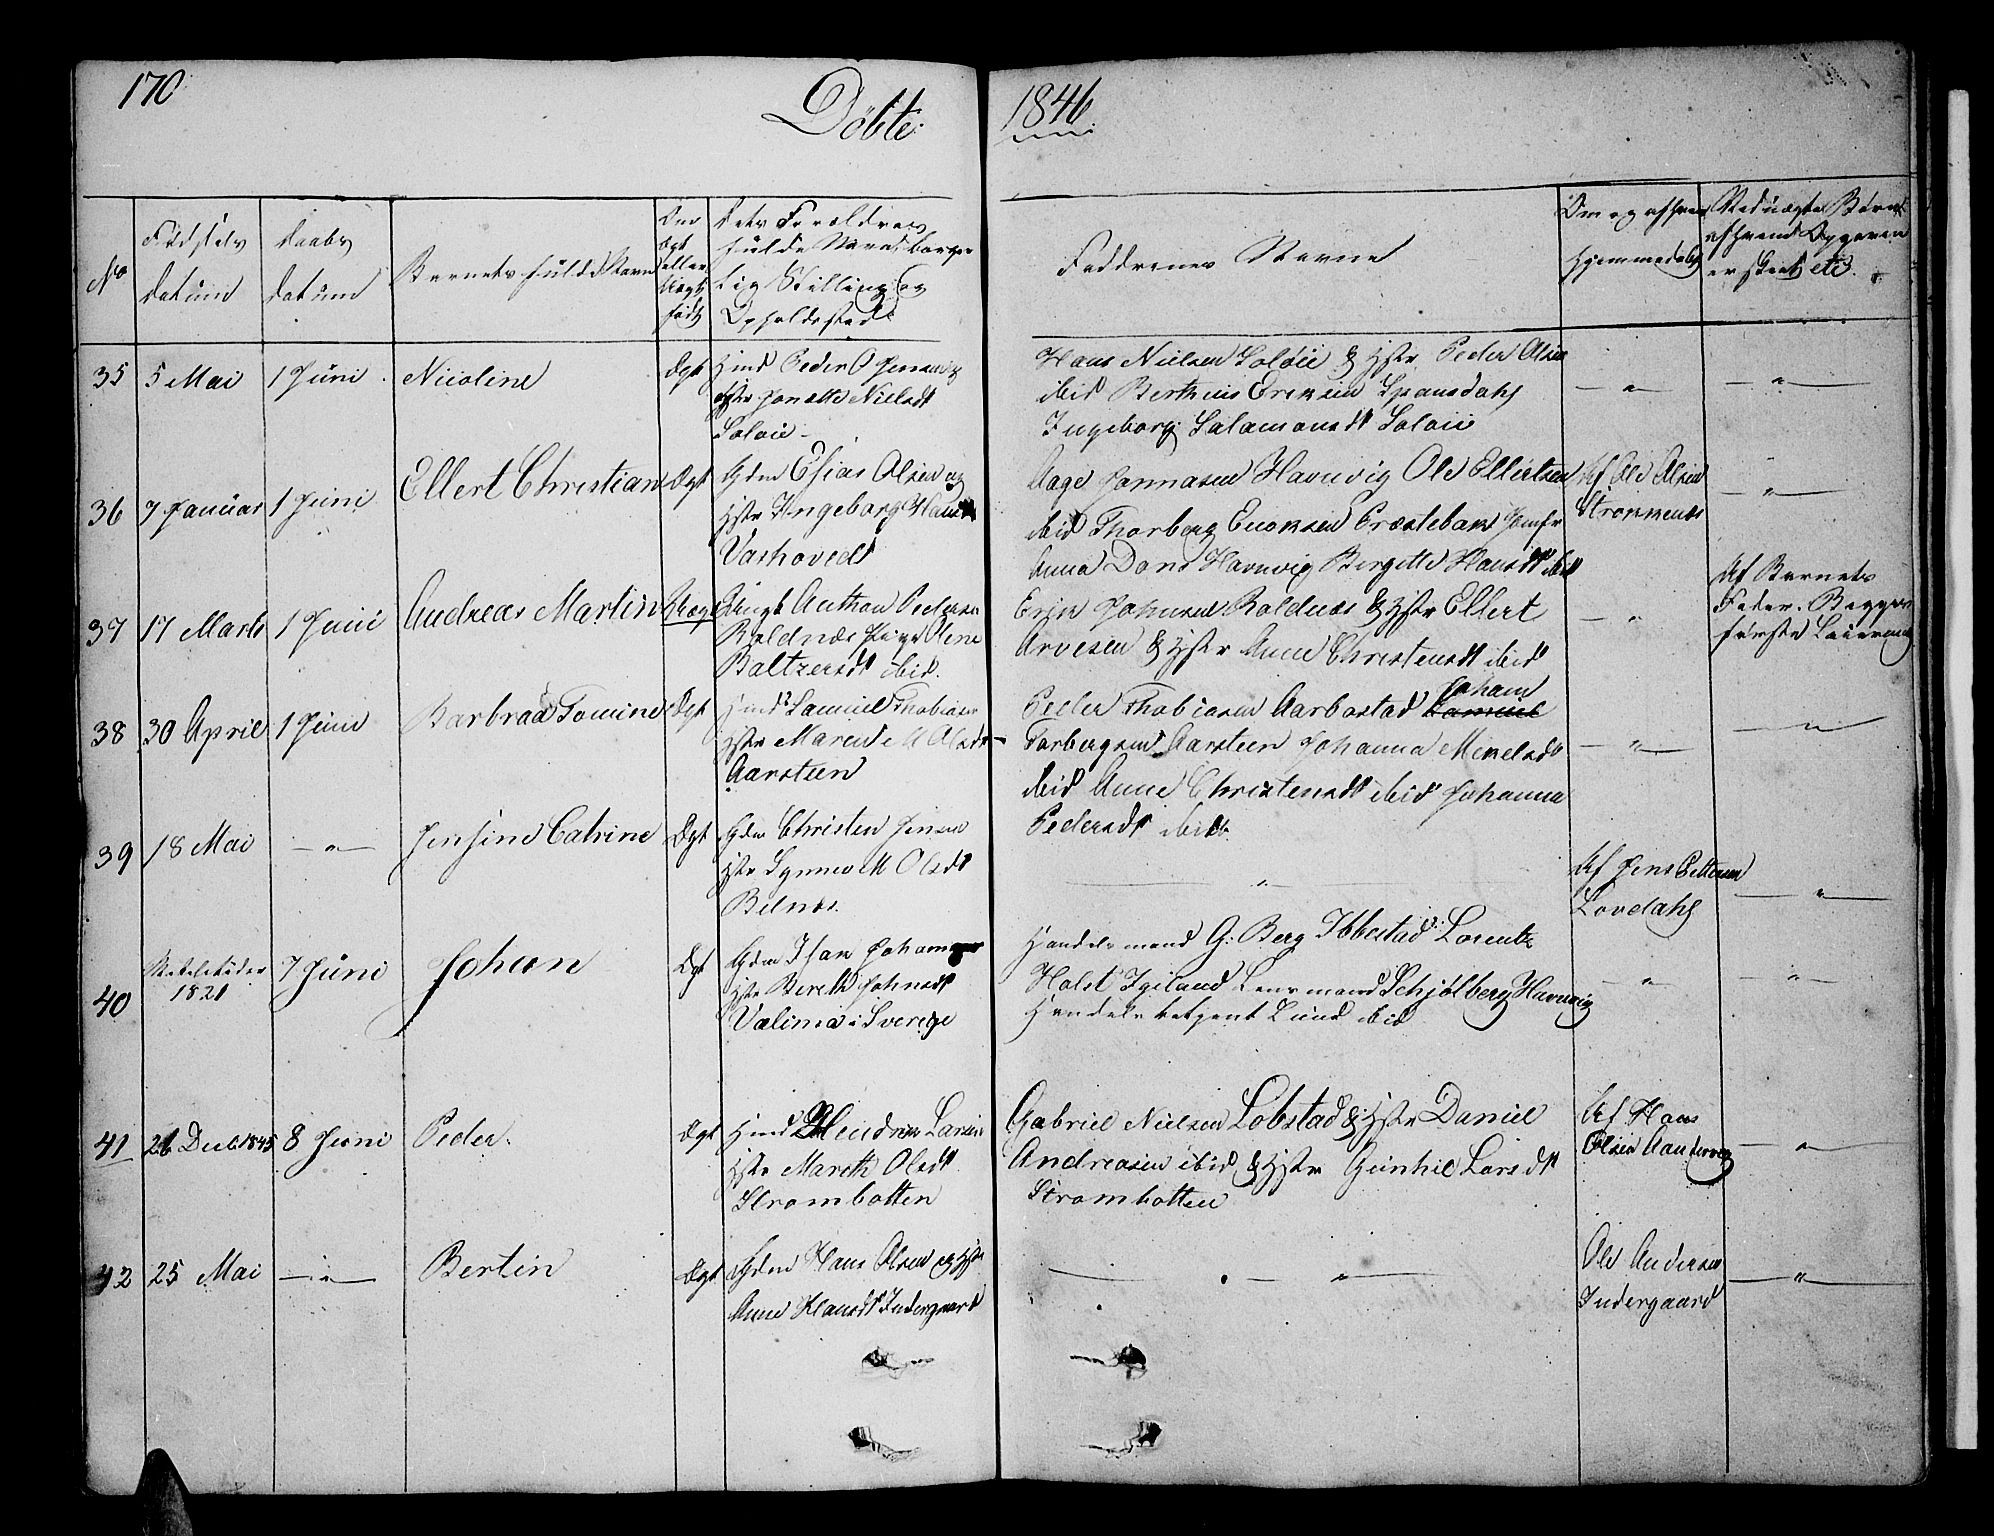 170
Döbte
1846
No
Fødsels
datum
Daabs
datum
Barnets fulde Navn
Om
Ægt
eller
Uægt
født
Dets Forældres
fulde Navn, borger
lig Stilling og
Opholdssted
Faddrenes Navne
Om og af hvem
Hjemmedøbt
Ved uægte Børn
af hvem Opgaven
er skeet etc.
35 5 Mai 1 Juni Nicoline Ægt
Hmd Peder O Jensen og
Hstr Jonette Nielsdt
Soløie
Hans Nielsen Soløie & Hstr Peder Olsen
ibid Berthius Eriksen Spansdahl
Ingeborg Salamonsdt Soløie
36 7 Januar 1 Juni Ellert Christian Ægt
Gdm Esias Olsen og
Hstr Ingeborg Hansdt
Vashoved
Aage Jonnasen Havnvig Ole Ellertsen
ibid Thorberg Enoksen Præstebak Jomfr
Anna Dons Havnvig Birgitte Hansdt ibid
Af Ole Olsen
Strokkenæs
37 17 Marts 1 Juni Andreas Martin Uægt
Ungk Anthon Pedersen
Boldnæs Pige Olene
Baltzersdt ibid.
Erik Johnsen Boldnæs & Hstr Ellert
Arvesen & Hstr Anne Christensdt ibid
Af Barnets
Fader. Begges
første Leiermaal
38 30 April 1 Juni Barbraa Tomine Ægt
Hmd Samuel Thobiasen
Hstr Maren M Olsdt
Aarsteen
Peder Thobiasen Aarbostad Samuel
Johan
Torbergsen Aarsteen Johanna Mikelsdt
ibid Anne Christensdt ibid Johanna
Pedersdt ibid.
39 18 Mai — " — Jensine Catrine Ægt
Gdm Christen Jensen
Hstr Synnev M Olsdt
Bolnæs.
Af Jens Pettersen
Lovdahl
40
1821 7 Juni Johan Ægt
Gdm Isan
Hstr Bereth Johnsdt
Valima i Sverige
Handelsmand G: Berg Ibbestad Lorentz
Holst Igeland Lensmand Schjølberg Havnvig
Handelsbetjent Lund ibid
41 26 Decb 1845 8 Juni Peder. Ægt
Hmd Hendrik Larsen
Hstr Mareth Olsdt
Strombotten
Gabriel Nielsen Lobstad & Hstr Daniel
Andreasen ibid & Hstr Gunhil Larsdt
Strombotten
Af Hans
Olsen Aandervig
42 25 Mai — " — Bertin Ægt
Gdm Hans Olsen og Hstr
Anne Hansdt Indergaard
Ole Andersen
Indergaard